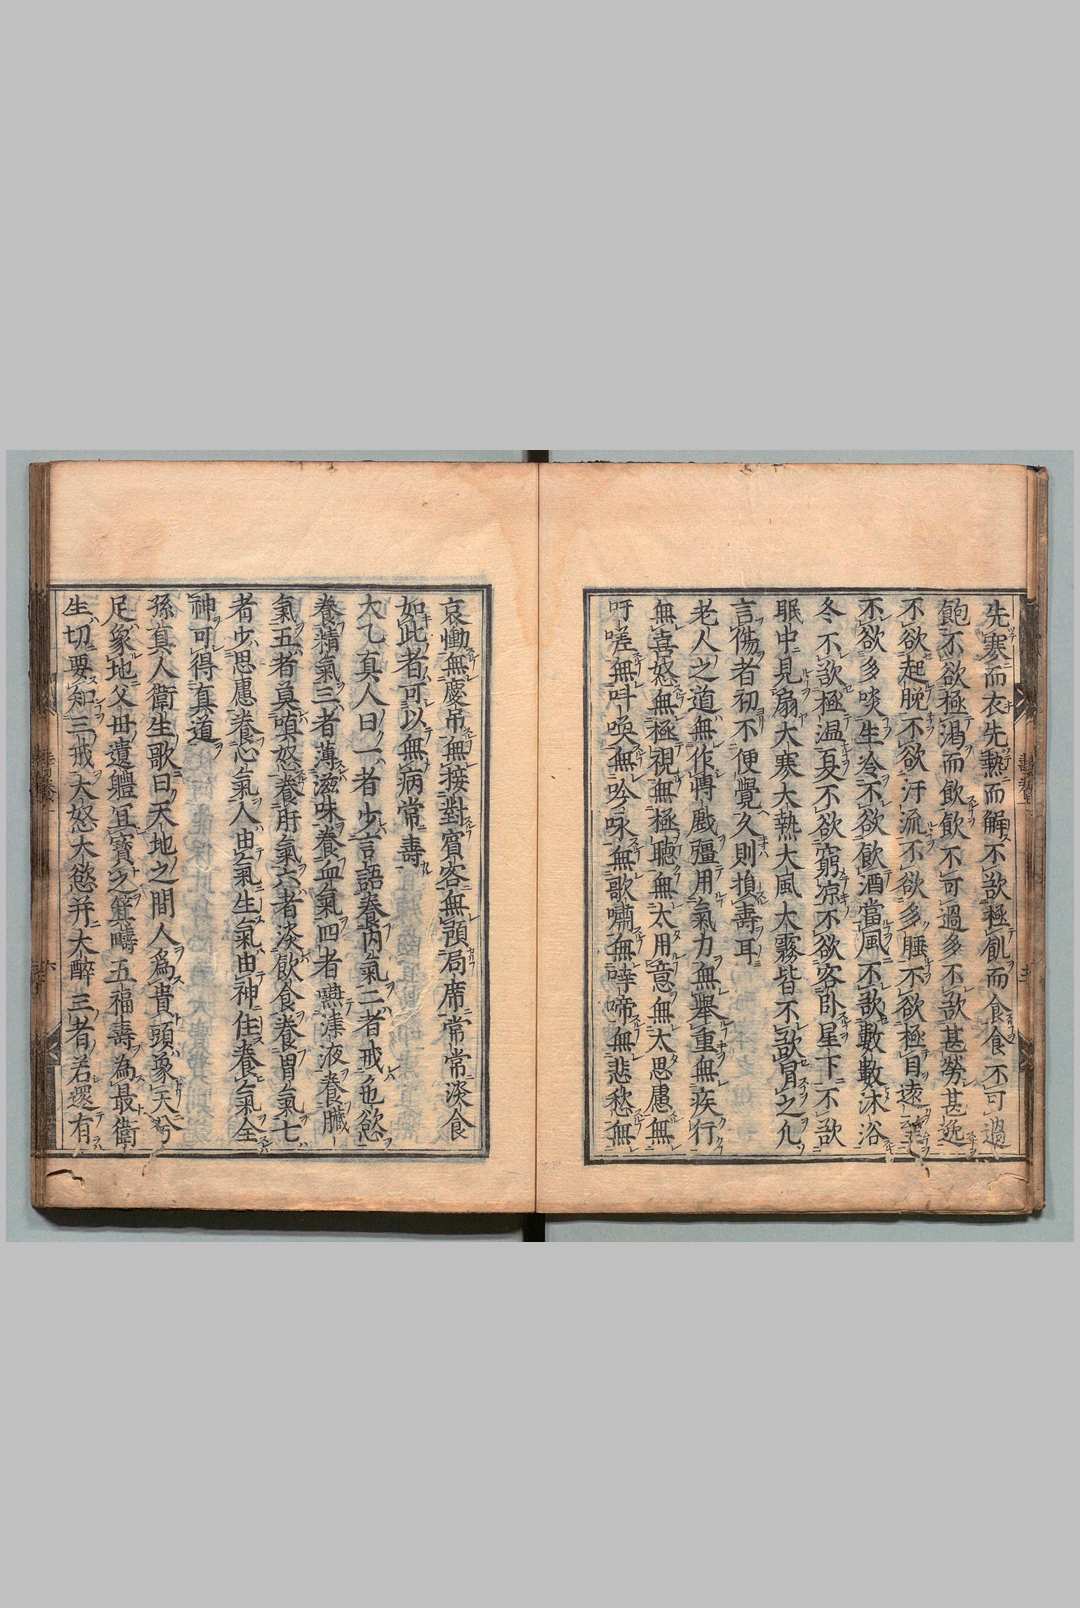 先寒而衣先熱而解不欲極飢而食食不可過
飽不欲極渴而飲飲不可過多不欲甚勞甚逸
不欲起晚不欲汗流不欲多睡不欲極目遠望
不欲多啖生冷不欲飲酒當風不欲數數沐浴
冬不欲極温夏不欲窮凉不欲客卧星下不欲
眠中見扇大寒大熱大風大霧皆不欲冒之凢
言傷者初不便覺久則損壽耳
老人之道無作博戲彊用氣力無舉重無疾行
無喜怒無極視無極聽無太用意無太思慮無
吁嗟無呌喚無吟咏無歌嘯無啼無悲愁無
哀慟無慶吊無接對賓客無預局席常常淡食
如此者可以無病常壽
太乙真人曰一者少言語養内氣二者戒色慾
養精氣三者薄滋味養血氣四者嚥津液養臟
氣五者莫嗔怒養肝氣六者淡飲食養胃氣七
者少思慮養心氣人由氣生氣由神住養氣全
神可得真道
孫真人衛生歌曰天地之間人爲貴頭象天兮
足象地父母遺體宜寶之箕疇五福壽為最衛
生切要知三戒大怒大慾并大醉三者若還有